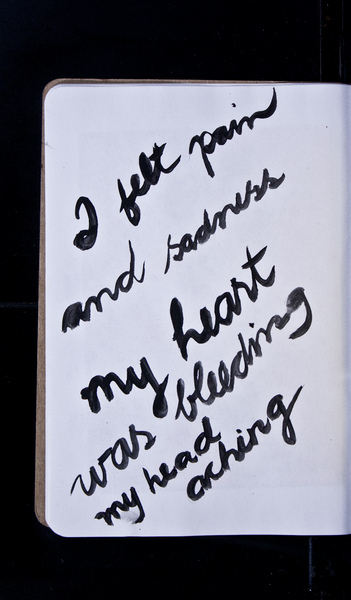 I felt pain
and sadness
my heart
was bleeding
my head
aching